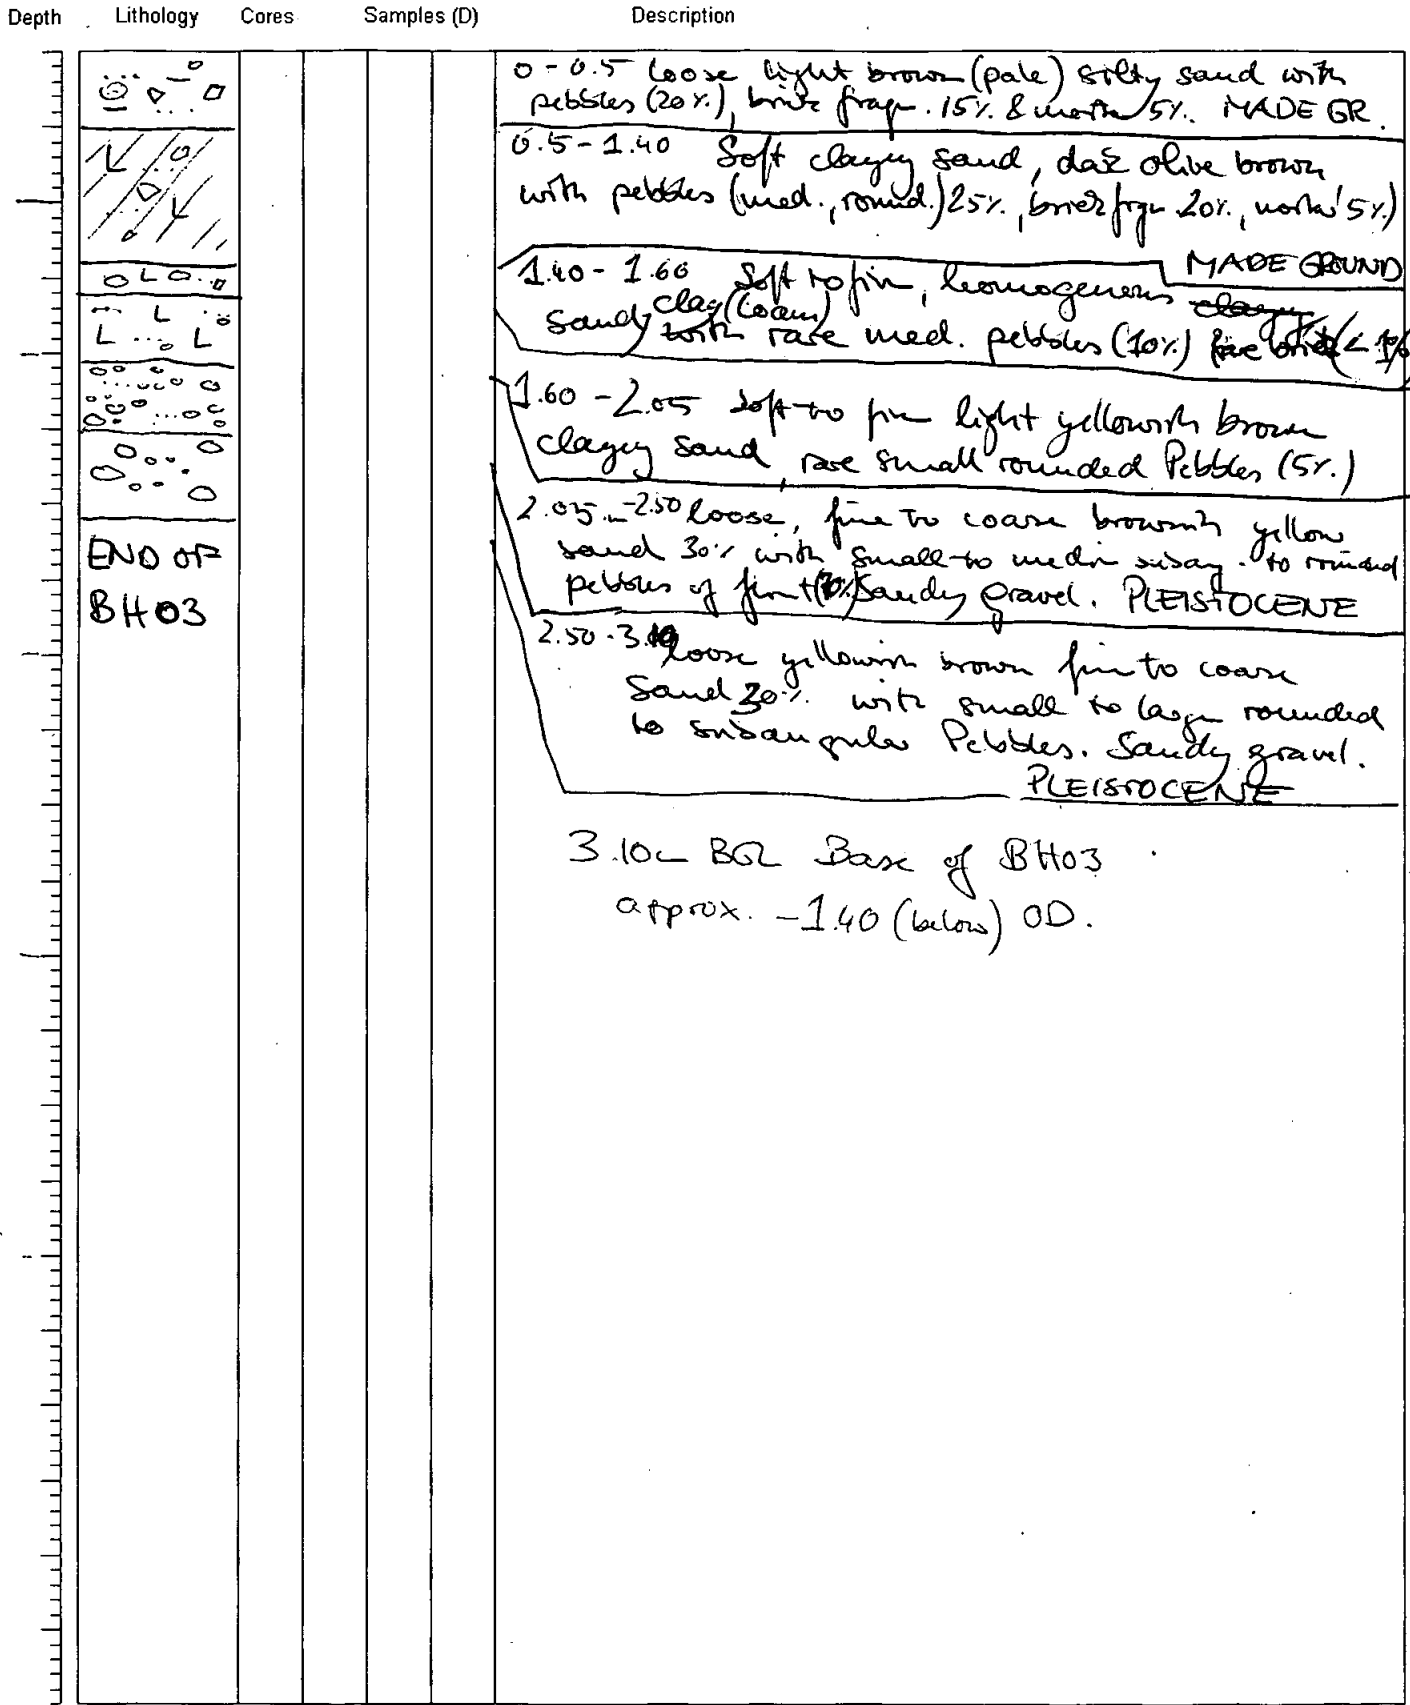 Depth Lithology Cores Samples (D) Description
0 - 0.5 loose light brown (pale) silty sand with
pebbles (20%), brick fragm. 15% & mortar 5%. MADE GR.
0.5 - 1.40 Soft clayey sand, dark olive brown
with pebbles (med., round.) 25%, brick frgm 20%, mortar 5%)
MADE GROUND
1.40 - 1.60 Soft to firm, homogenous clayey
Sandy clay (loam)
with rare med. pebbles (10%) brick (< 1%
1.60 - 2.05 soft to firm light yellowish brown
clayey sand, rare small rounded Pebbles (5%)
2.05 - 2.50 loose, fine to coarse brownish yellow
sand 30% with small to medium subang. to rounded
pebbles of flint (70%) Sandy Gravel. PLEISTOCENE
2.50 - 3.10 loose yellowish brown fine to coarse
Sand 30% with small to large rounded
to subangular Pebbles. Sandy gravel.
PLEISTOCENE
END OF
BH03
3.10 BGL Base of BH03
approx. -1.40 (below) OD.